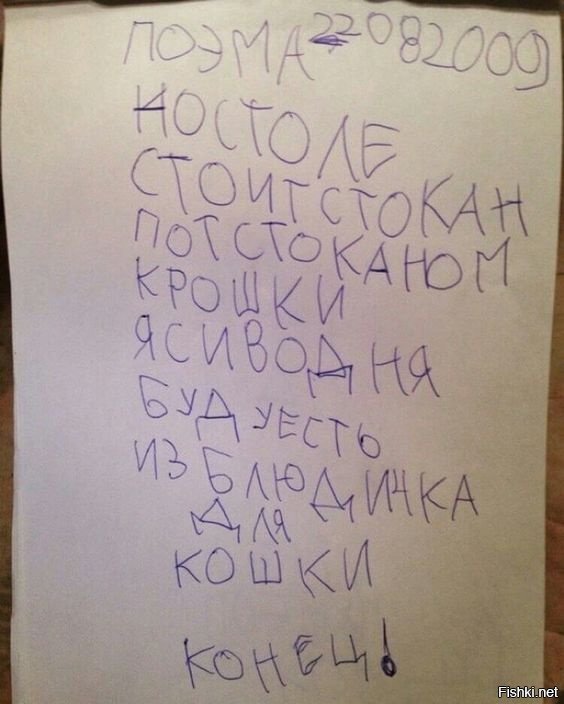 ПОЭМА 22082009
НОСТОЛЕ
СТОИТ СТОКАН
ПОТ СТОКАНОМ
КРОШКИ
ЯСИВОДНЯ
БУДУЕСТЬ
ИЗ БЛЮДИЧКА
ДЛЯ
КОШКИ
КОНЕЦ!
Fishki.net